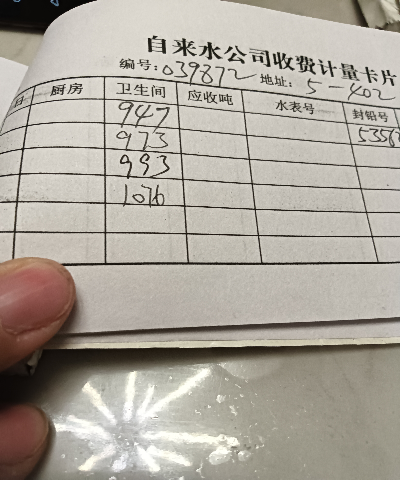 自来水公司收费计量卡片
编号:039872 地址:5-402
厨房 卫生间 应收吨 水表号 封铅号
947
973
993
1076